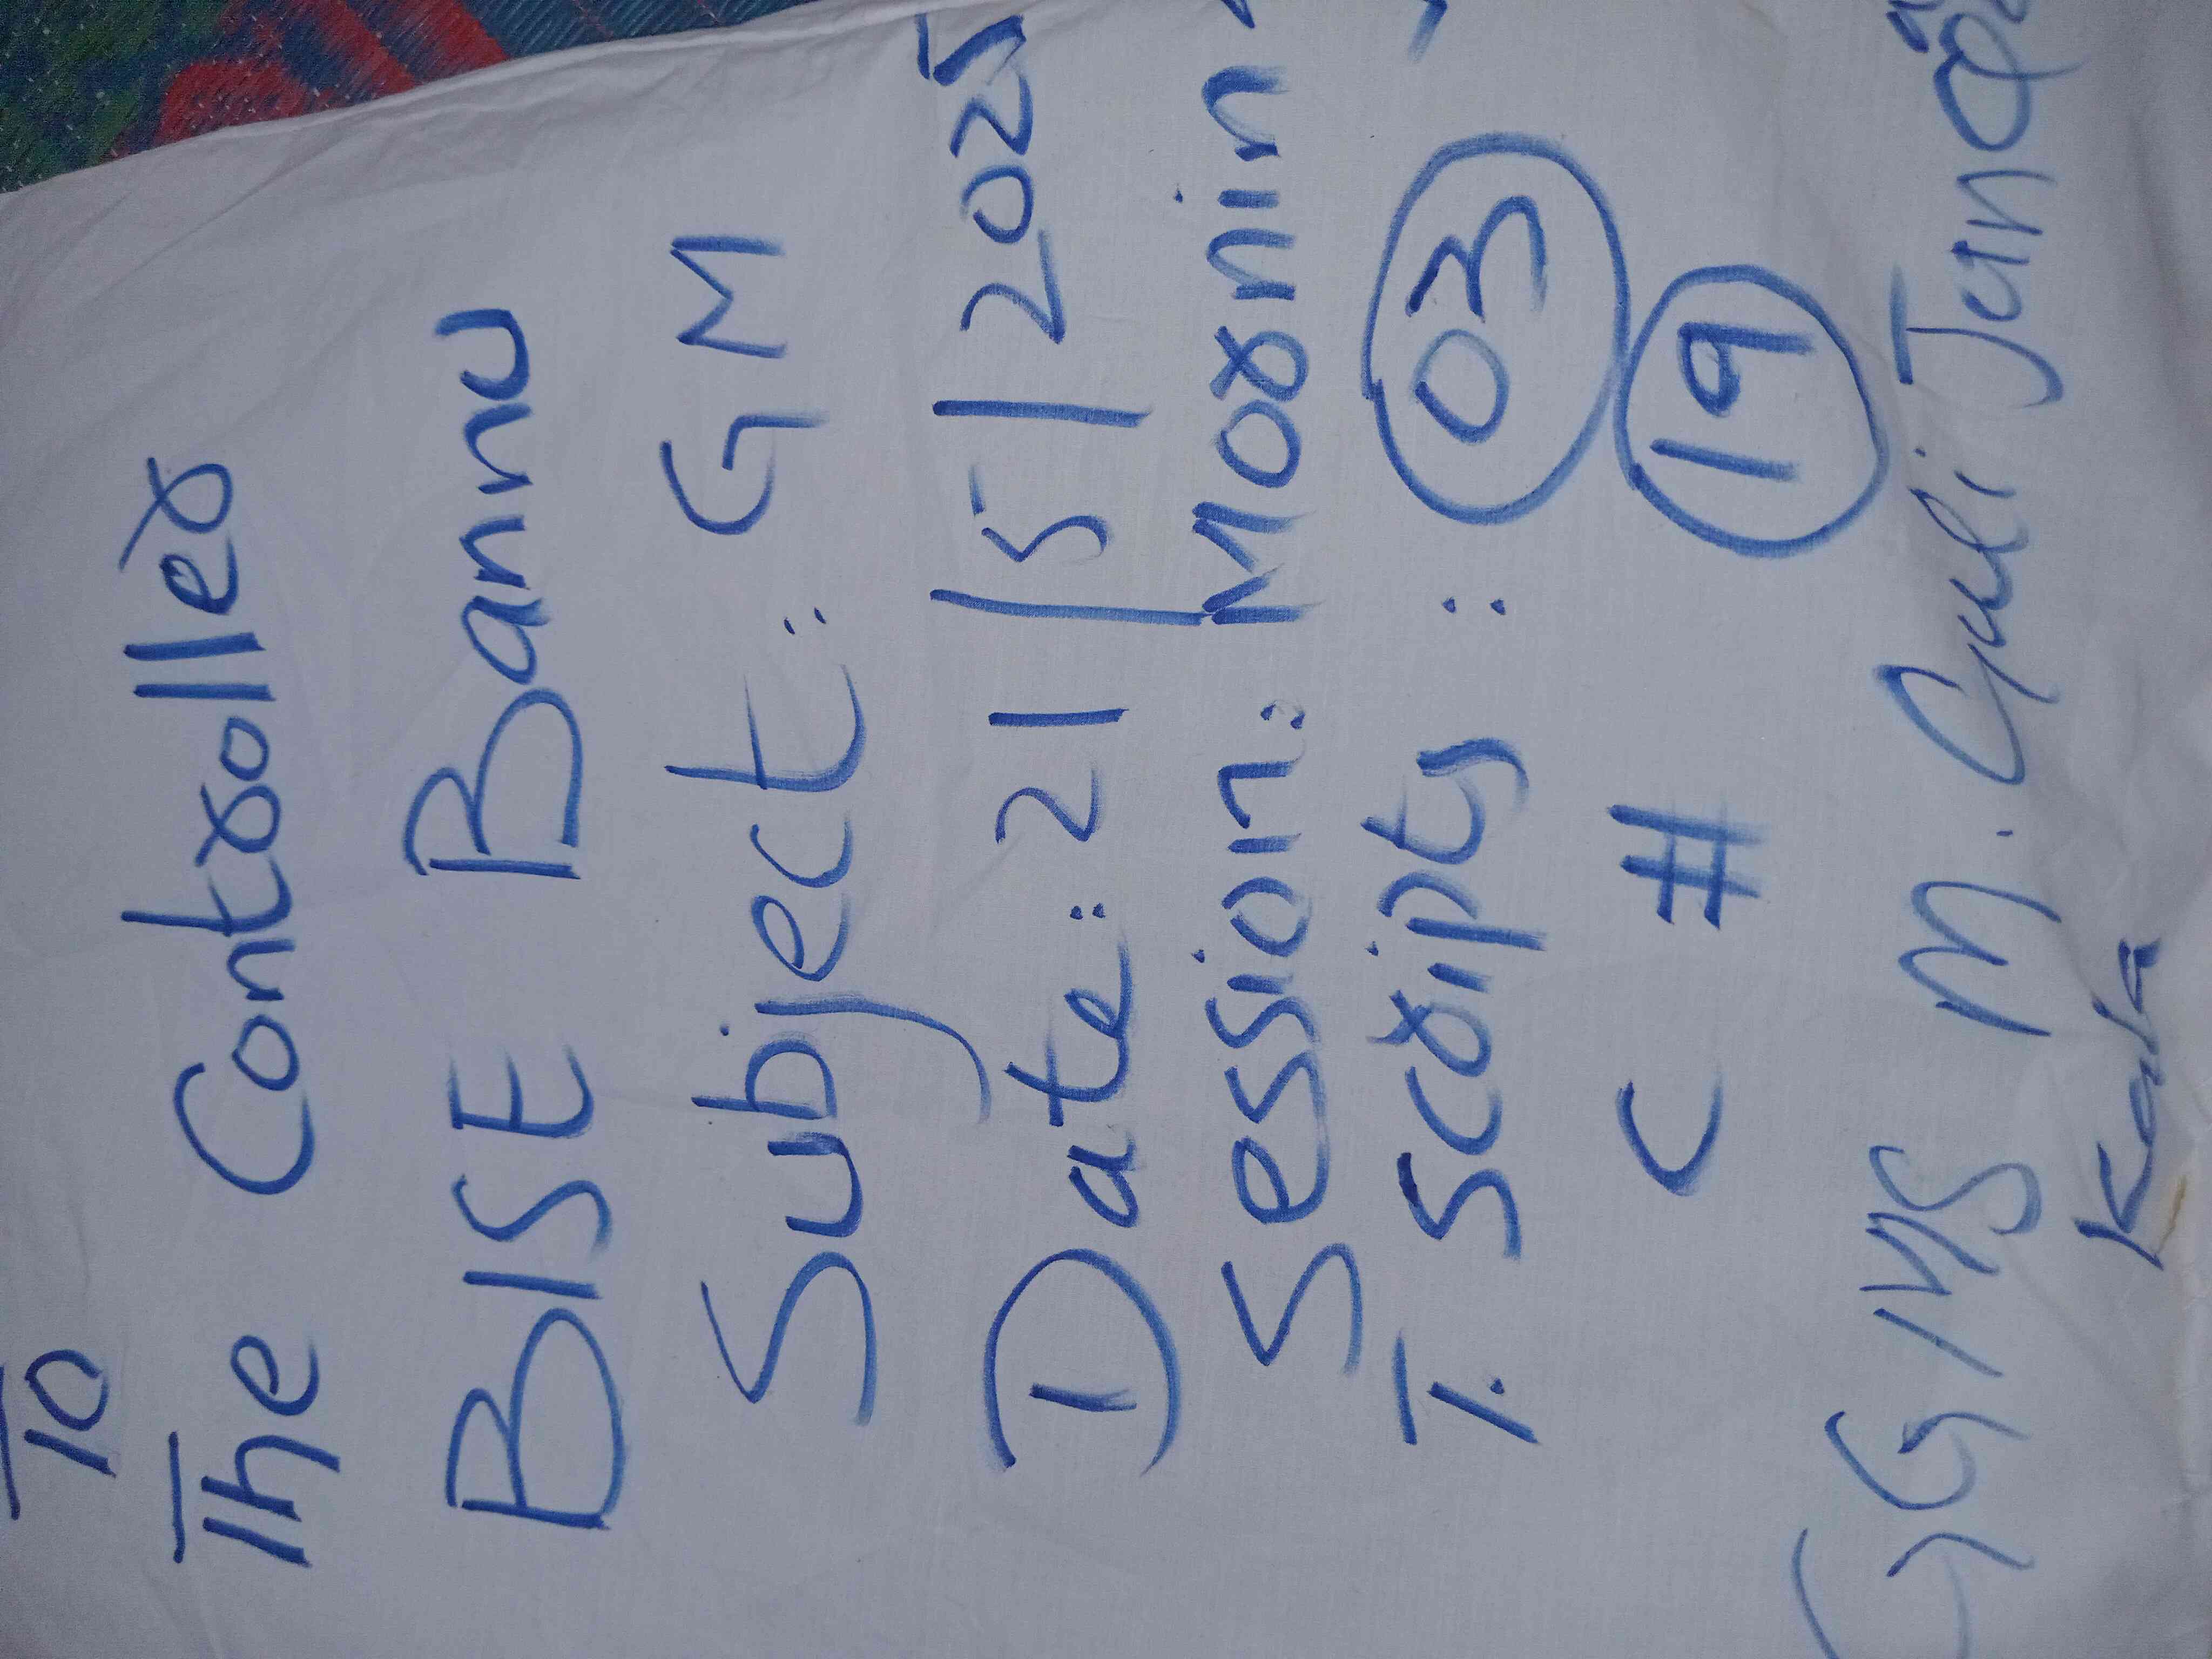 To
The Controller
BISE Bannu
Subject: GM
Date: 21/5/2025
Session: Morning
T. Scripts : 03
C # 19
GGMS M. Guli Jan
Kala